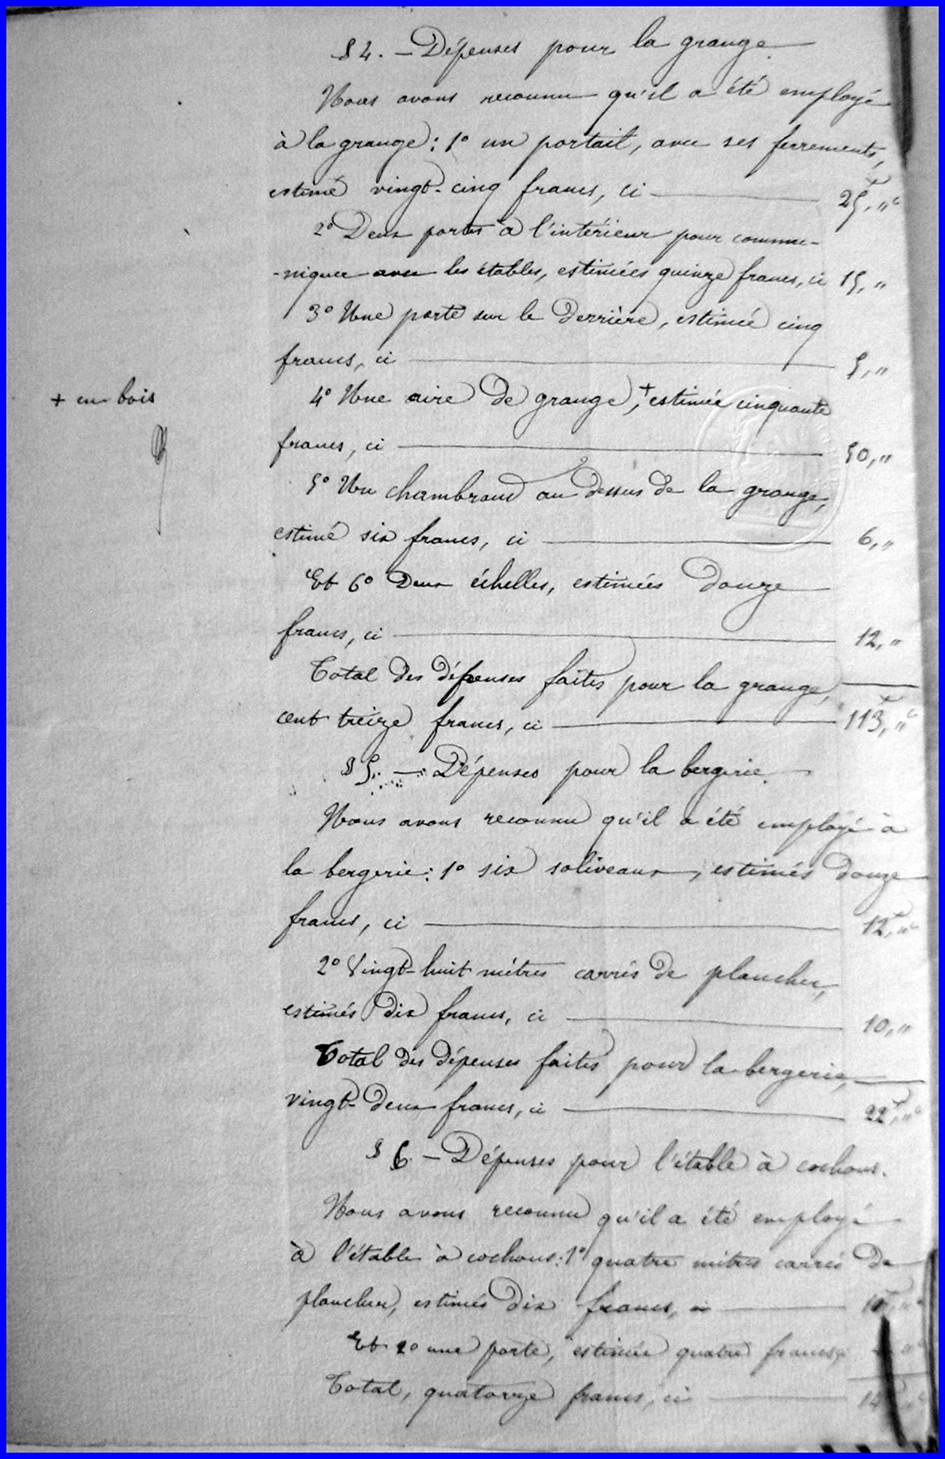 § 4. — Dépenses pour la grange
Nous avons reconnu qu'il a été employé
à la grange : 1° un portail, avec ses ferrements,
estimé vingt-cinq francs, ci — 25,"
2° Deux portes à l'intérieur pour commu-
-niquer avec les étables, estimées quinze francs, ci 15,"
3° Une porte sur le derrière, estimée cinq
francs, ci — 5,"
+ en bois
4° Une aire de grange,+ estimée cinquante
francs, ci — 50,"
5° Un chambraud au dessus de la grange,
estimé six francs, ci — 6,"
Et 6° Deux échelles, estimées douze
francs, ci — 12,"
Total des dépenses faites pour la grange,
cent treize francs, ci — 113,"
§ 5. — Dépenses pour la bergerie.
Nous avons reconnu qu'il a été employé à
la bergerie : 1° six soliveaux, estimés douze
francs, ci — 12,"
2° Vingt-huit mètres carrés de plancher,
estimés dix francs, ci — 10,"
Total des dépenses faites pour la bergerie,
vingt-deux francs, ci — 22,"
§ 6 — Dépenses pour l'étable à cochons.
Nous avons reconnu qu'il a été employé
à l'étable à cochons : 1° quatre mètres carrés de
plancher, estimés dix francs, ci — 10,"
Et 2° une porte, estimée quatre francs,
Total, quatorze francs, ci — 14,"